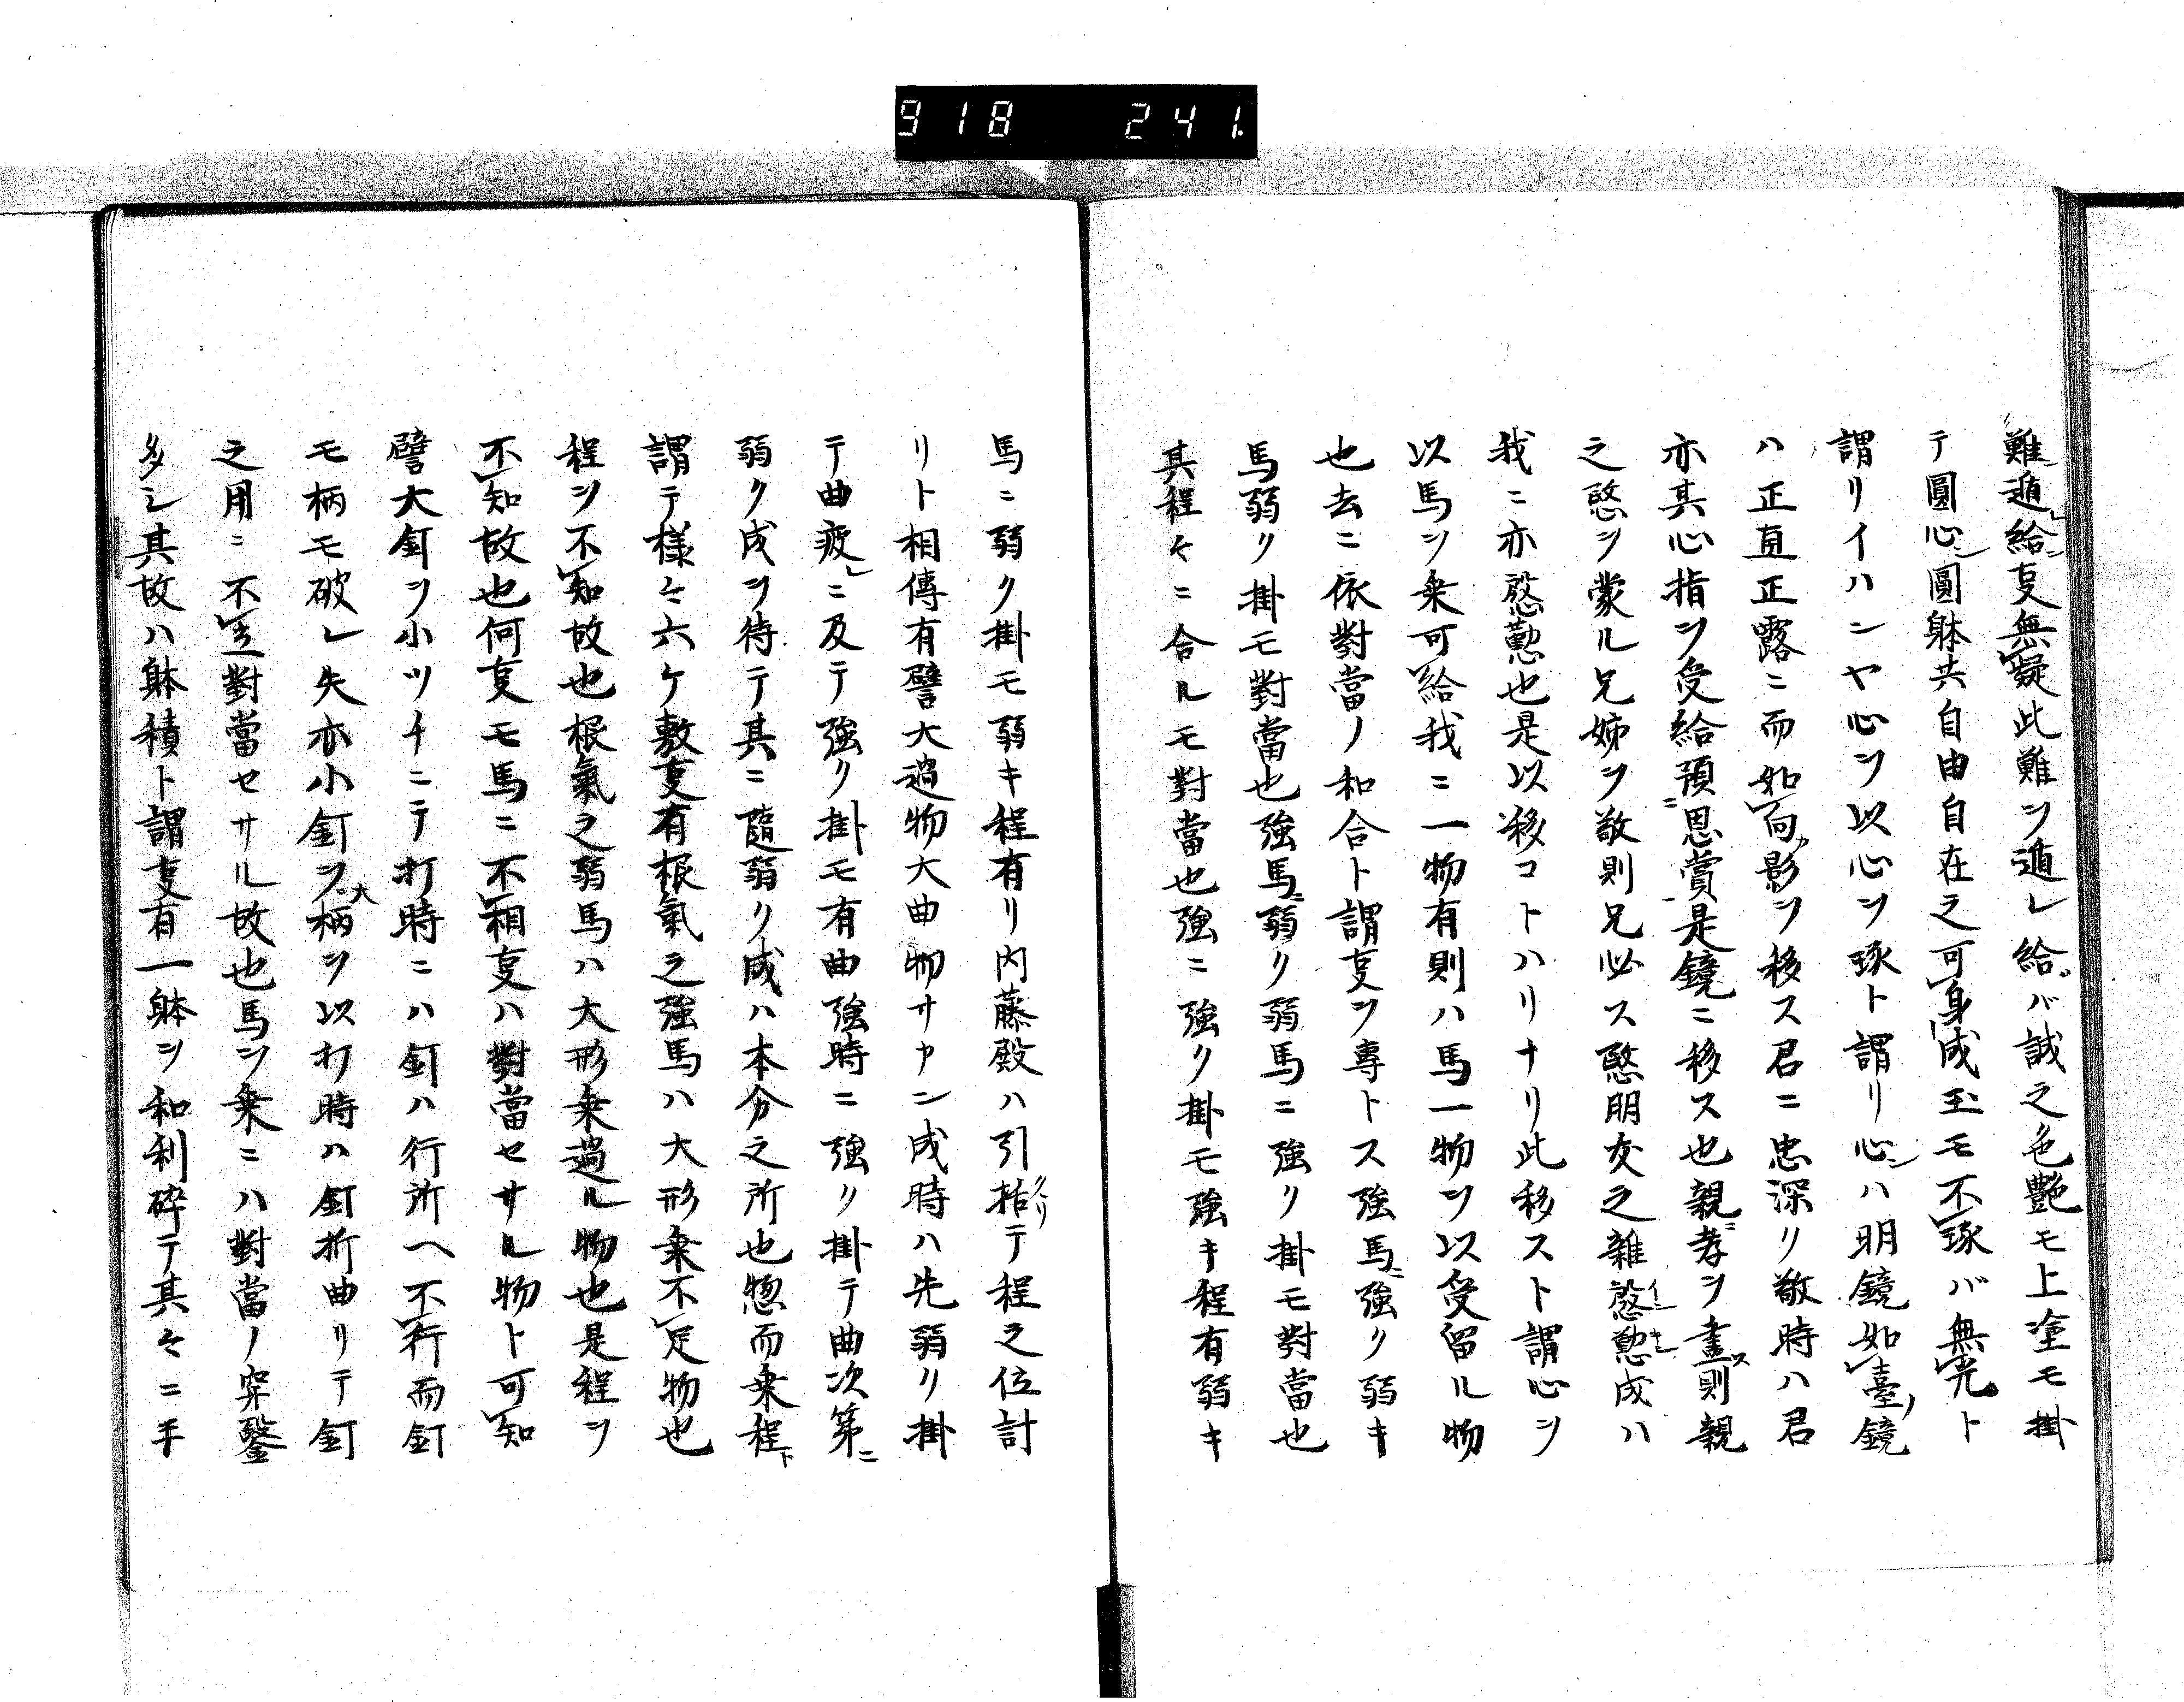 918 241
難遁レ給フ㕝無疑此難ヲ遁レ給ハバ誠之色艶モ上塗モ掛
テ圓心ニ圓躰共自由自在之可身成玉モ不琢バ無光ト
謂リイハンヤ心ヲ以心ヲ琢ト謂リ心ハ明鏡如臺ノ鏡
ハ正直正露ニ而如向カ影ヲ移ス君ニ忠深リ敬時ハ君
亦其心指ヲ受給預ニ恩賞是鏡ニ移ス也親ニ孝ヲ盡ス則親
之愍ヲ蒙ル兄姉ヲ敬則兄必ス愍朋友之雑慇懃成ハ
我ニ亦慇懃也是以移コトハリナリ此移スト謂心ヲ
以馬ヲ乗可給我ニ一物有則ハ馬一物ヲ以受留ル物
也去ニ依對當ノ和合ト謂㕝ヲ専トス強馬ニ強ク弱キ
馬弱リ掛モ對當也強馬ニ弱リ弱馬ニ強リ掛モ對當也
其程々ニ合ルモ對當也強ニ強ク掛モ強キ程有弱キ
馬ニ弱ク掛モ弱キ程有リ内藤殿ハ引括クヽリテ程之位計
リト相傳有譬大過物大曲物サアン成時ハ先弱リ掛
テ曲疲レニ及テ強ク掛モ有曲強時ニ強リ掛テ曲次第ニ
弱ク成ヲ待テ其ニ隨弱ク成ハ本分之所也惣而乗程ト
謂テ様々六ケ敷㕝有根氣之強馬ハ大形乗不足物也
程ヲ不知故也根氣之弱馬ハ大形乗過ル物也是程ヲ
不知故也何㕝モ馬ニ不相㕝ハ對當セサル物ト可知
譬大釘ヲ小ツチニテ打時ニハ釘ハ行所ヘ不行而釘
モ柄モ破レ失亦小釘ヲ大柄ヲ以打時ハ釘折曲リテ釘
之用ニ不立對當セサル故也馬ヲ乗ニハ對當ノ穿鑿
多シ其故ハ躰積ト謂㕝有一躰ヲ和利碎テ其々ニ手